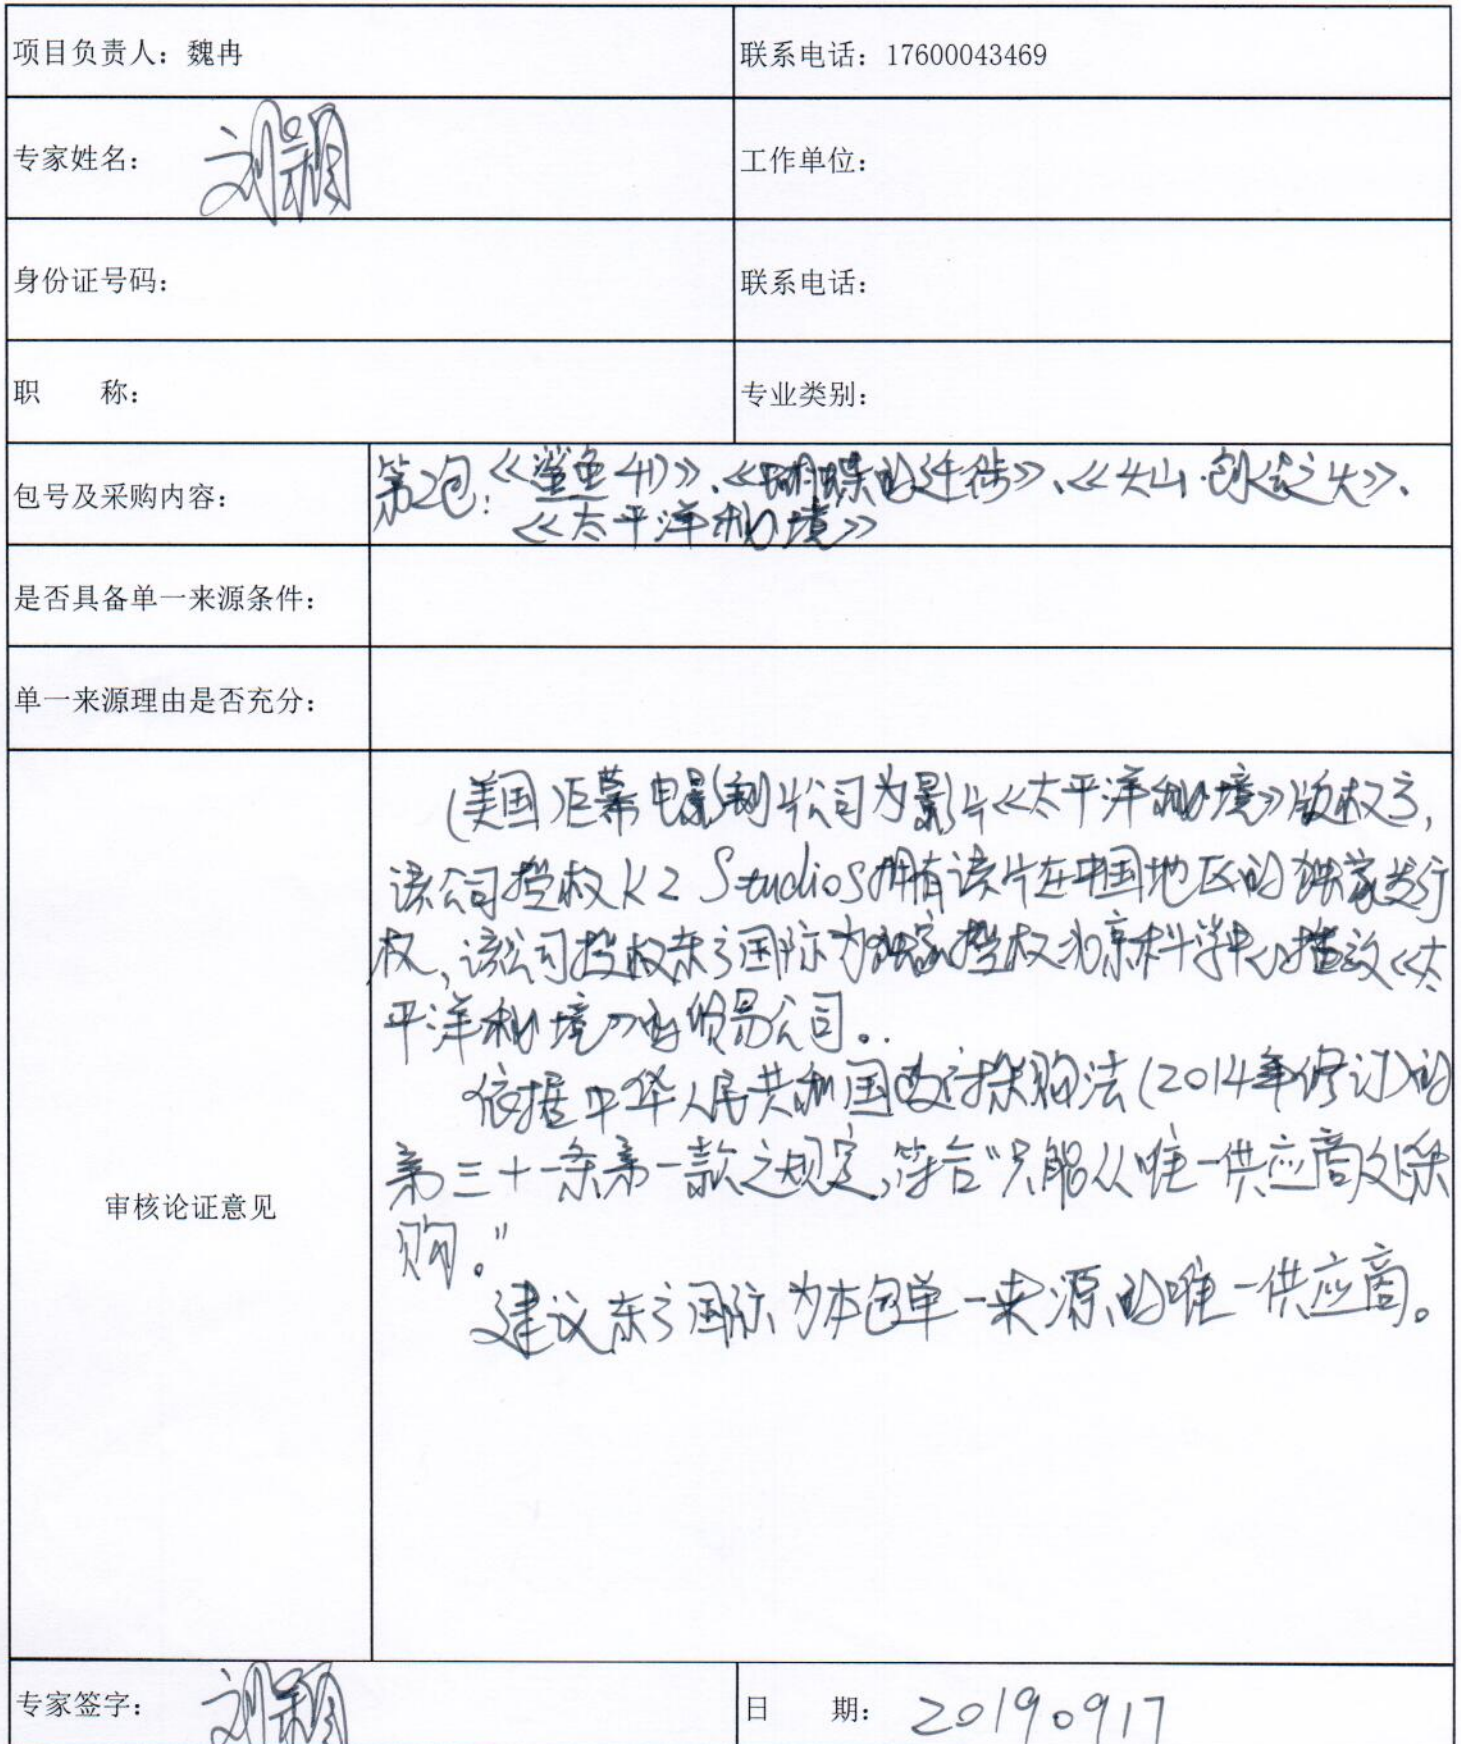 项目负责人：魏冉
联系电话：17600043469
专家姓名：刘颖
工作单位：
身份证号码：
联系电话：
职 称：
专业类别：
包号及采购内容：
第2包：《鲨鱼4D》、《蝴蝶的迁徙》、《火山·创世之火》、
《太平洋秘境》
是否具备单一来源条件：
单一来源理由是否充分：
审核论证意见
(美国)巨幕电影制片公司为影片《太平洋秘境》版权方，
该公司授权K2 Studios拥有该片在中国地区的独家发行
权，该公司授权东方国际为独家授权北京科学中心播放《太
平洋秘境》的贸易公司。
依据中华人民共和国政府采购法(2014年修订)的
第三十一条第一款之规定，符合“只能从唯一供应商处采
购。”
建议东方国际为本包单一来源的唯一供应商。
专家签字：刘颖
日 期：20190917